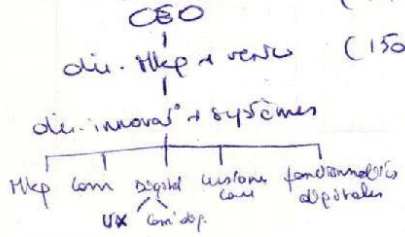 CEO
dir. Mkg + vente (150
dir. innovat° + systèmes
Mkg Com Digital customer care fonctionnalités digitales
UX Com dig.